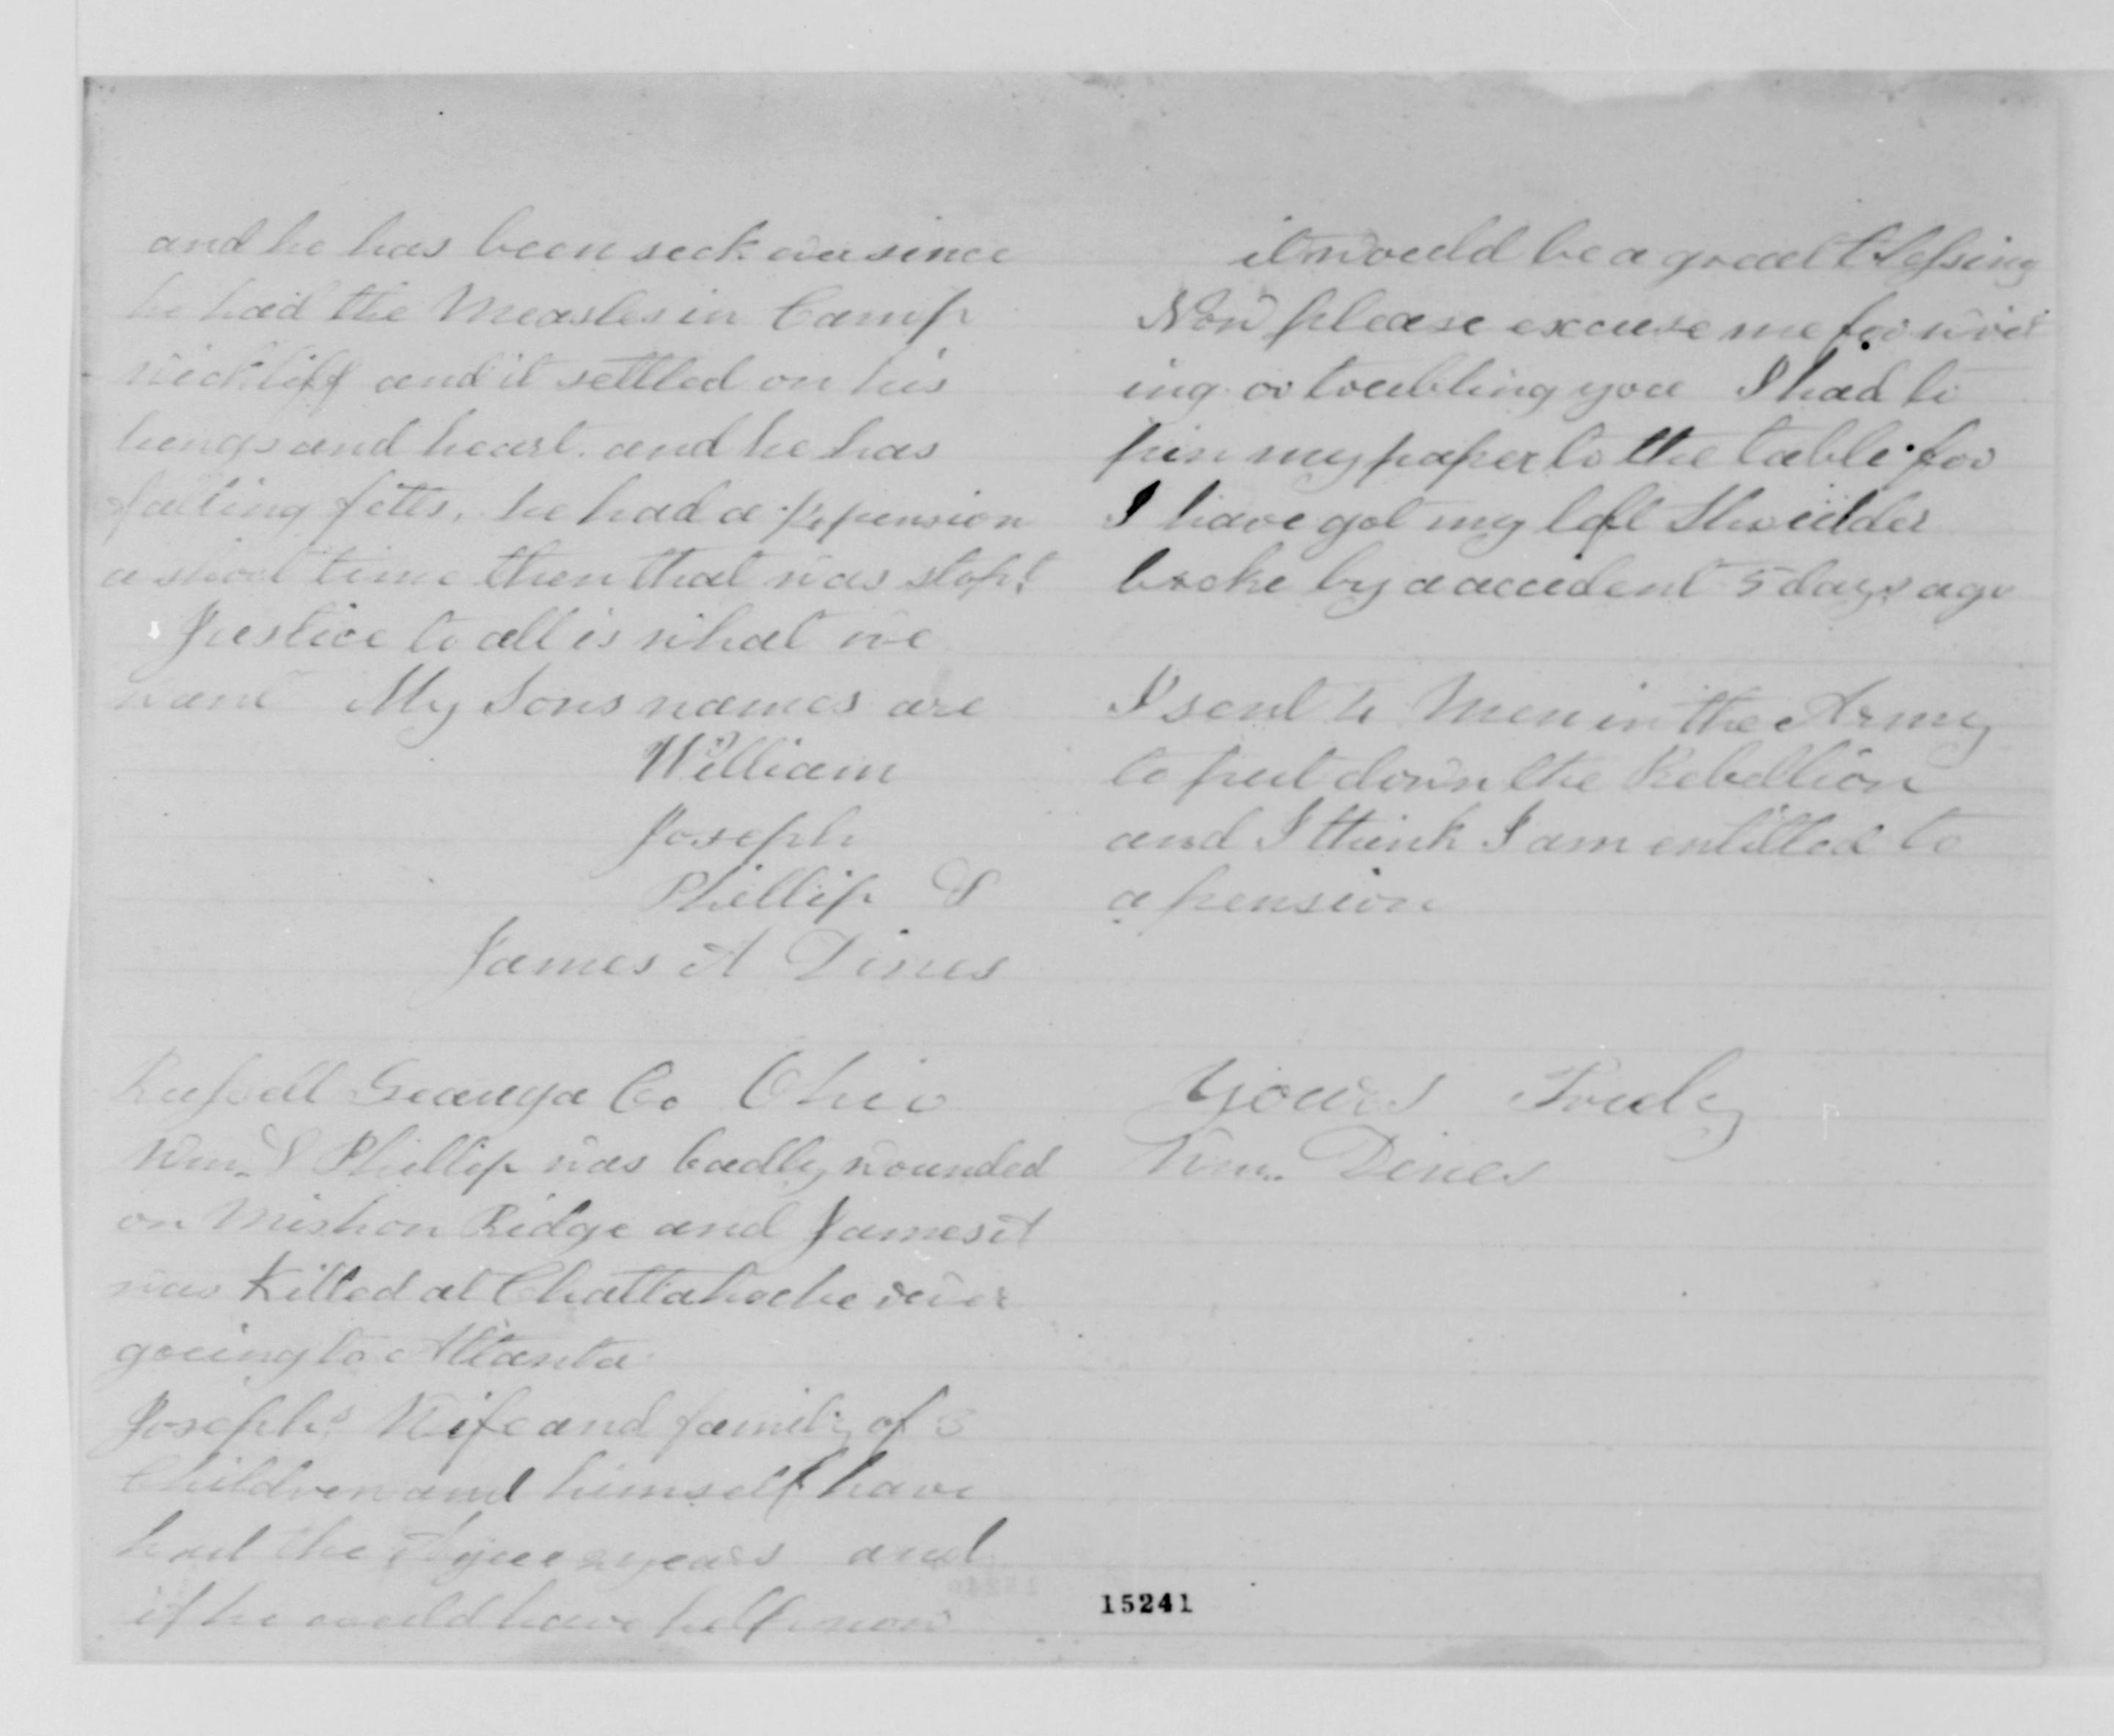 and he has been sick ever since
he had the Measles in Camp
Wickliff and it settled on his
lungs and heart. and he has
falling fitts. he had a pension
a short time then that was stopt
Justice to all is what we
want My Sons names are
William
Joseph
Phillip S
James A Dines
Russell Geauga Co Ohio
Wm. & Phillip was badly wounded
on Mishon Ridge and James A
was Killed at Chattahoche river
gocing to Atlanta
Josephs Wife and family of 3
Children and himself have
had the Ague 2 years and
if he could have help now
it would be a great blessing
Now please excuse me for writ
ing or troubling you I had to
pin my paper to the table for
I have got my left Shoulder
broke by a accident 5 days ago
I sent 4 Men in the Army
to put down the Rebellion
and I think I am entitled to
a pension
Yours Truly
Wm. Dines
15241